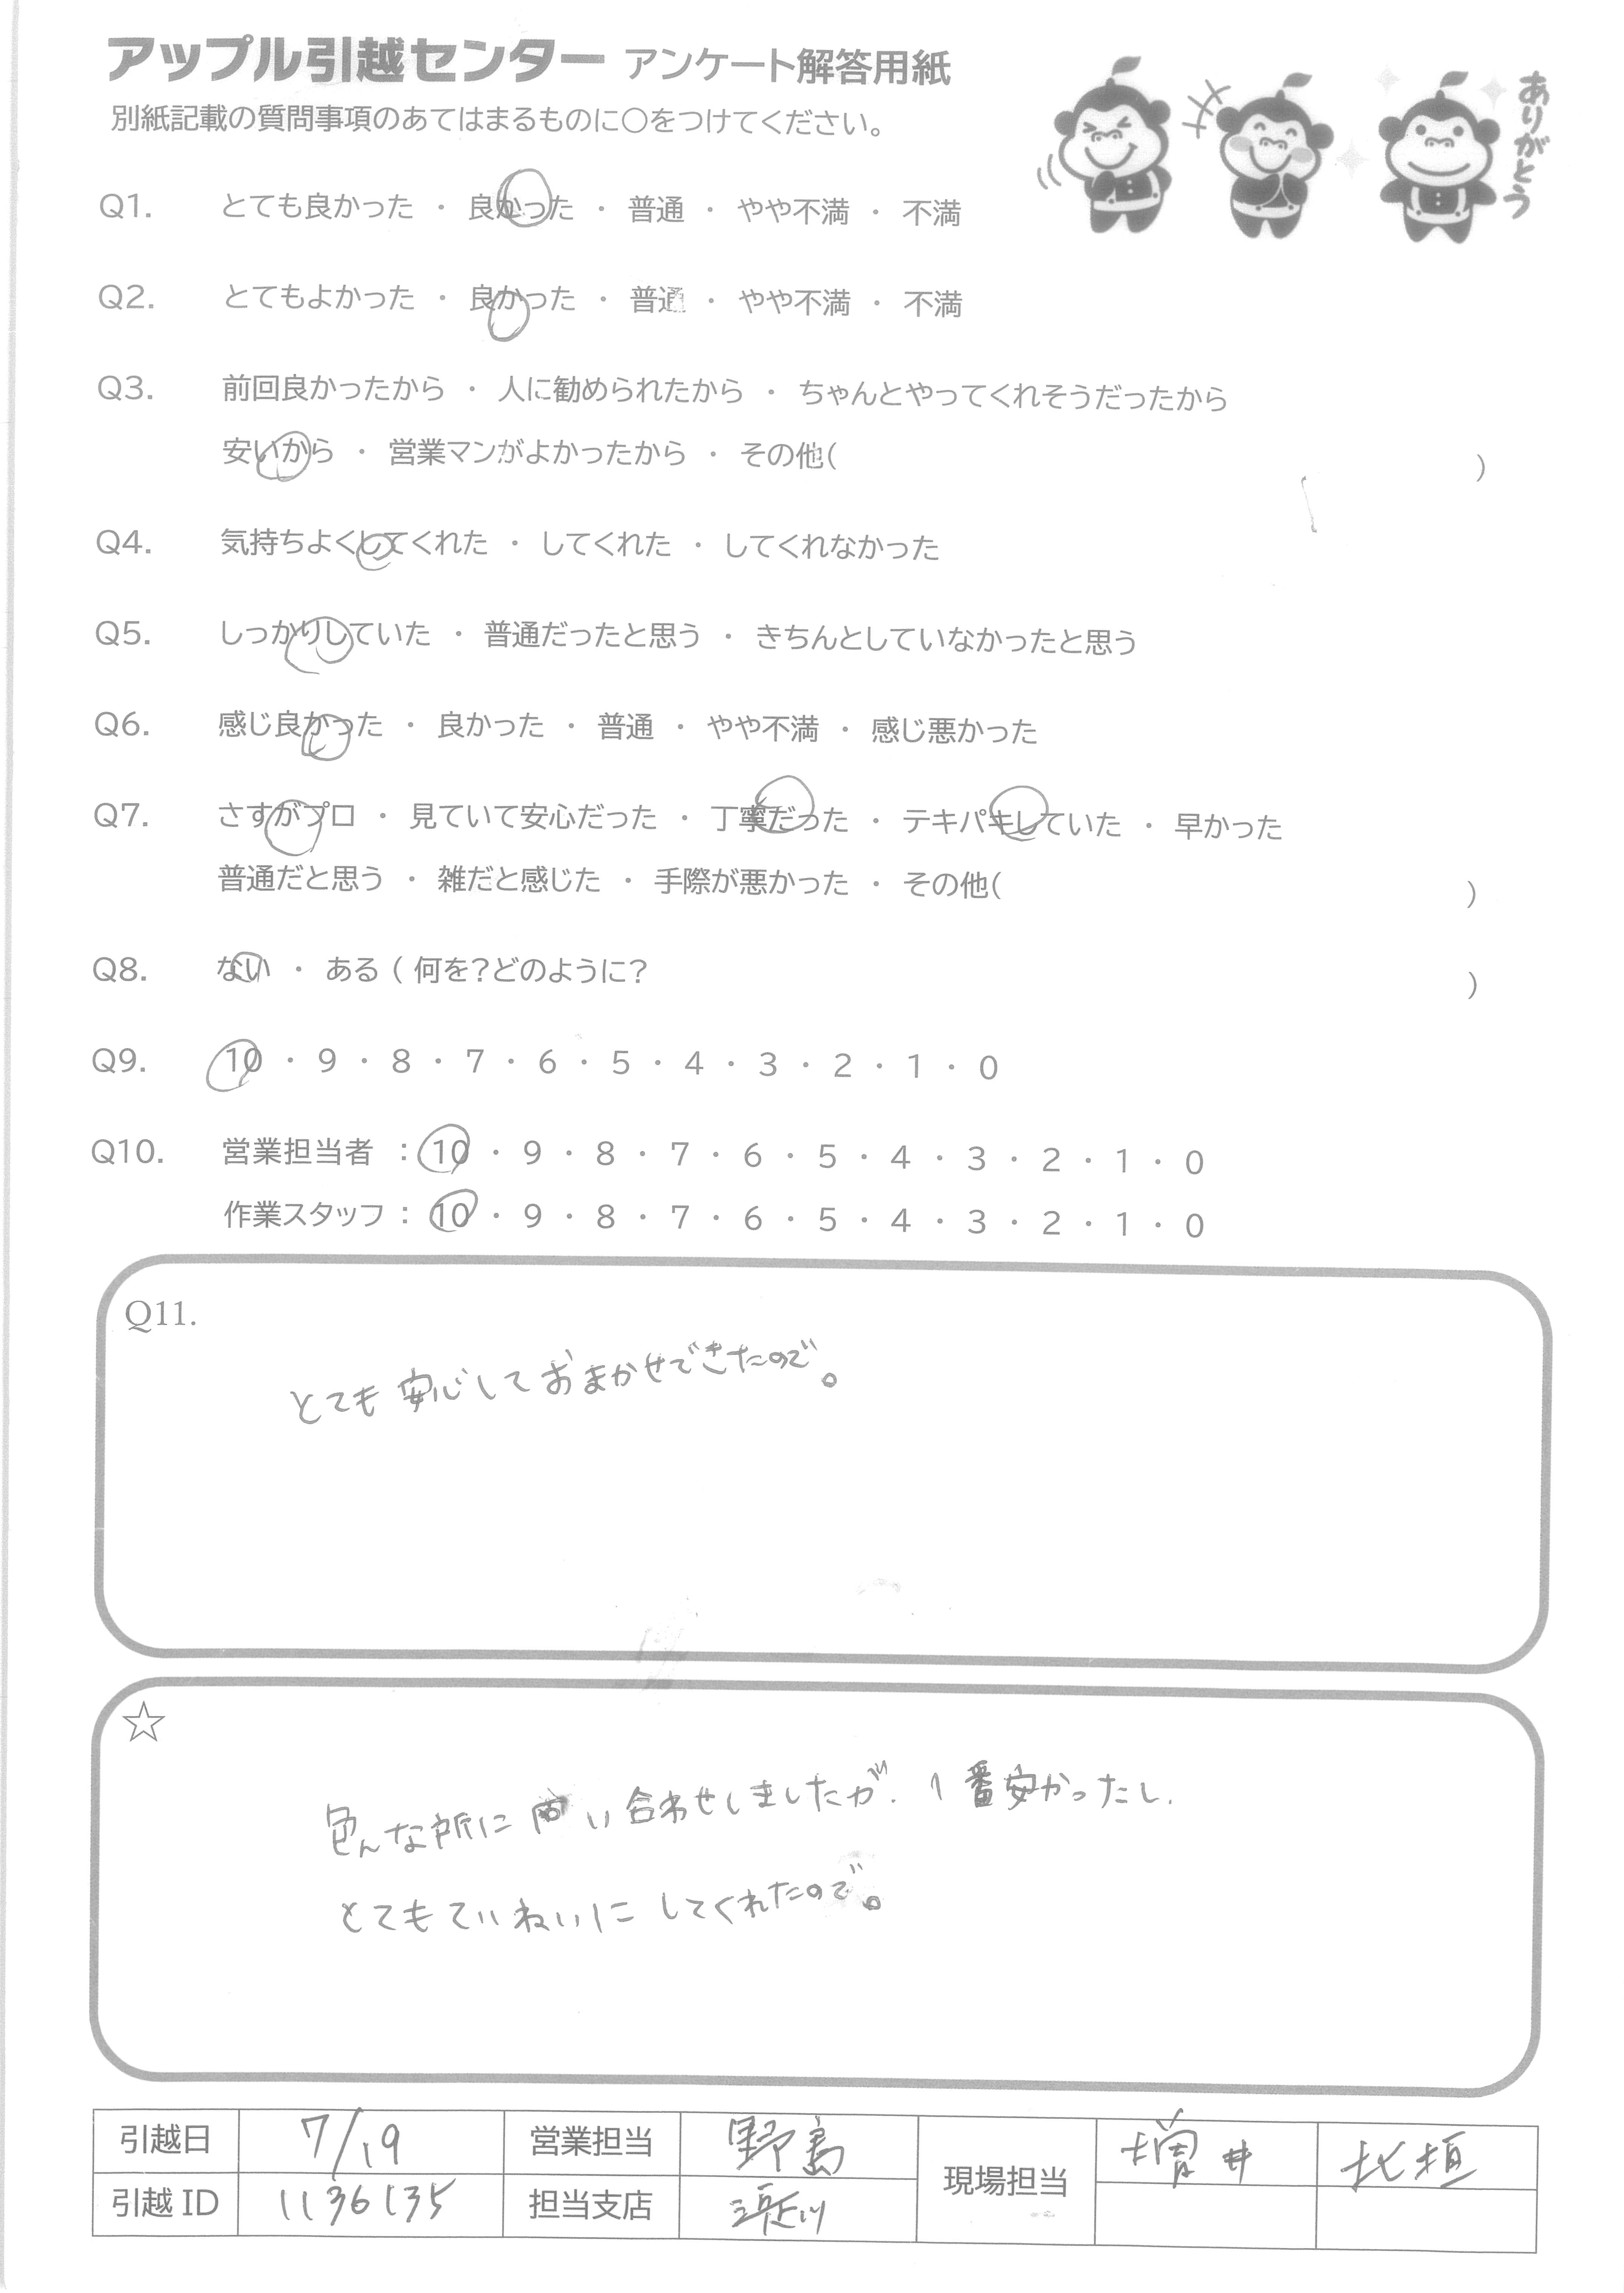 アップル引越センター アンケート解答用紙
別紙記載の質問事項のあてはまるものに○をつけてください。
ありがとう
Q1. とても良かった ・ 良かった ・ 普通 ・ やや不満 ・ 不満
Q2. とてもよかった ・ 良かった ・ 普通 ・ やや不満 ・ 不満
Q3. 前回良かったから ・ 人に勧められたから ・ ちゃんとやってくれそうだったから
安いから ・ 営業マンがよかったから ・ その他( )
Q4. 気持ちよくしてくれた ・ してくれた ・ してくれなかった
Q5. しっかりしていた ・ 普通だったと思う ・ きちんとしていなかったと思う
Q6. 感じ良かった ・ 良かった ・ 普通 ・ やや不満 ・ 感じ悪かった
Q7. さすがプロ ・ 見ていて安心だった ・ 丁寧だった ・ テキパキしていた ・ 早かった
普通だと思う ・ 雑だと感じた ・ 手際が悪かった ・ その他( )
Q8. ない ・ ある ( 何を?どのように? )
Q9. 10 ・ 9 ・ 8 ・ 7 ・ 6 ・ 5 ・ 4 ・ 3 ・ 2 ・ 1 ・ 0
Q10. 営業担当者 : 10 ・ 9 ・ 8 ・ 7 ・ 6 ・ 5 ・ 4 ・ 3 ・ 2 ・ 1 ・ 0
作業スタッフ : 10 ・ 9 ・ 8 ・ 7 ・ 6 ・ 5 ・ 4 ・ 3 ・ 2 ・ 1 ・ 0
Q11.
とても安心しておまかせできたので。
☆
色んな所に問い合わせしましたが、1番安かったし、
とてもていねいにしてくれたので。
引越日 7/19 営業担当 野島 現場担当 増井 北垣
引越ID 1136135 担当支店